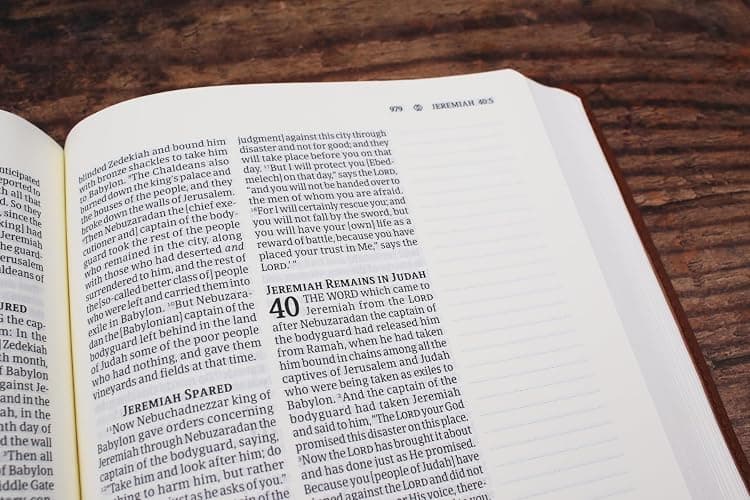 nticipated
eported to
ith all that
d. So they
, since the
king] had
Jeremiah
the guard-
Jerusalem
uldeans of
URED
G the cap-
m: In the
Zedekiah
th month,
f Babylon
gainst Je-
and in the
ah, in the
nth day of
d the wall
³Then all
f Babylon
iddle Gate
979 JEREMIAH 40:5
blinded Zedekiah and bound him
with bronze shackles to take him
to Babylon. ⁸The Chaldeans also
burned down the king's palace and
the houses of the people, and they
broke down the walls of Jerusalem.
⁹Then Nebuzaradan the [chief exe-
cutioner and] captain of the body-
guard took the rest of the people
who remained in the city, along
with those who had deserted and
surrendered to him, and the rest of
the [so-called better class of] people
who were left and carried them into
exile in Babylon. ¹⁰But Nebuzara-
dan the [Babylonian] captain of the
bodyguard left behind in the land
of Judah some of the poor people
who had nothing, and gave them
vineyards and fields at that time.
JEREMIAH SPARED
¹¹Now Nebuchadnezzar king of
Babylon gave orders concerning
Jeremiah through Nebuzaradan the
captain of the bodyguard, saying,
¹²"Take him and look after him; do
nothing to harm him, but rather
as he asks of you."
captain of the
judgment] against this city through
disaster and not for good; and they
will take place before you on that
day. ¹⁷But I will protect you [Ebed-
melech] on that day," says the LORD,
"and you will not be handed over to
the men of whom you are afraid.
¹⁸For I will certainly rescue you; and
you will not fall by the sword, but
you will have your [own] life as a
reward of battle, because you have
placed your trust in Me," says the
LORD.'"
JEREMIAH REMAINS IN JUDAH
40 THE WORD which came to
Jeremiah from the LORD
after Nebuzaradan the captain of
the bodyguard had released him
from Ramah, when he had taken
him bound in chains among all the
captives of Jerusalem and Judah
who were being taken as exiles to
Babylon. ²And the captain of the
bodyguard had taken Jeremiah
and said to him, "The LORD your God
promised this disaster on this place.
³Now the LORD has brought it about
and has done just as He promised.
Because you [people of Judah] have
sinned against the LORD and did not
His voice, there-